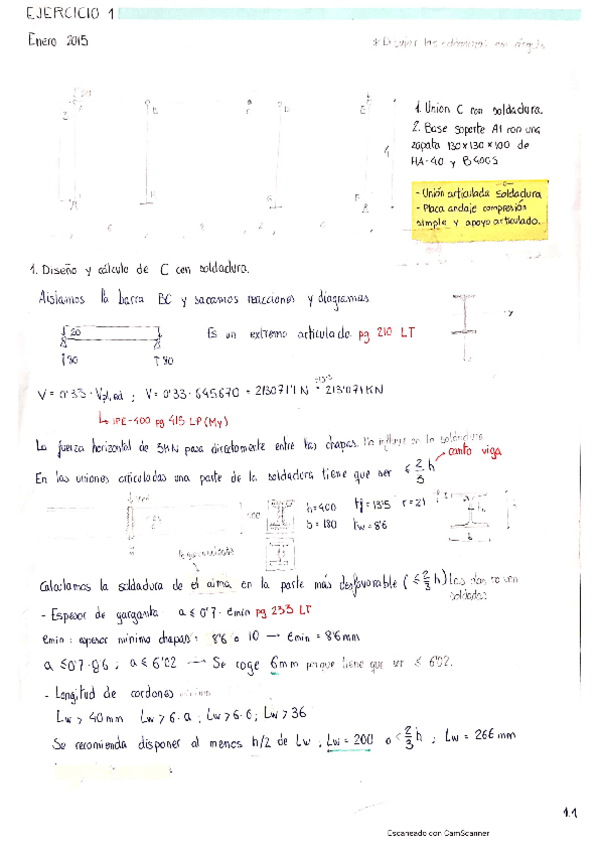 EJERCICIO 1
Enero 2015
1. Union C con soldadura.
2. Base soporte A1 con una
zapata 130x130x100 de
HA-40 y B400S
- Unión articulada soldadura
- Placa anclaje compresión
simple y apoyo articulado.
1. Diseño y cálculo de C con soldadura.
Aislamos la barra BC y sacamos reacciones y diagramas
Es un extremo articulado pg 210 LT
V = 0'33 · Vpl,ed ; V = 0'33 · 645.670 = 213071'1 N = 213'071 KN
↳ IPE-400 pg 415 LP (My)
La fuerza horizontal de 34KN pasa directamente entre las chapas. No influye en la soldadura
canto viga
En las uniones articuladas una parte de la soldadura tiene que ser < 2/3 h
h=400 tf=13'5 r=21
b=180 tw=8'6
Calculamos la soldadura de el alma en la parte más desfavorable (≤ 2/3 h)
soldadas
- Espesor de garganta a ≤ 0'7 · emin pg 233 LT
emin: espesor mínimo chapas: 8'6 o 10 → emin = 8'6 mm
a ≤ 0'7 · 8'6 ; a ≤ 6'02 → Se coge 6mm porque tiene que ser ≤ 6'02.
- Longitud de cordones
Lw > 40mm Lw > 6·a ; Lw > 6·6 ; Lw > 36
Se recomienda disponer al menos h/2 de Lw ; Lw = 200 o < 2/3 h ; Lw = 266 mm
1.1
Escaneado con CamScanner